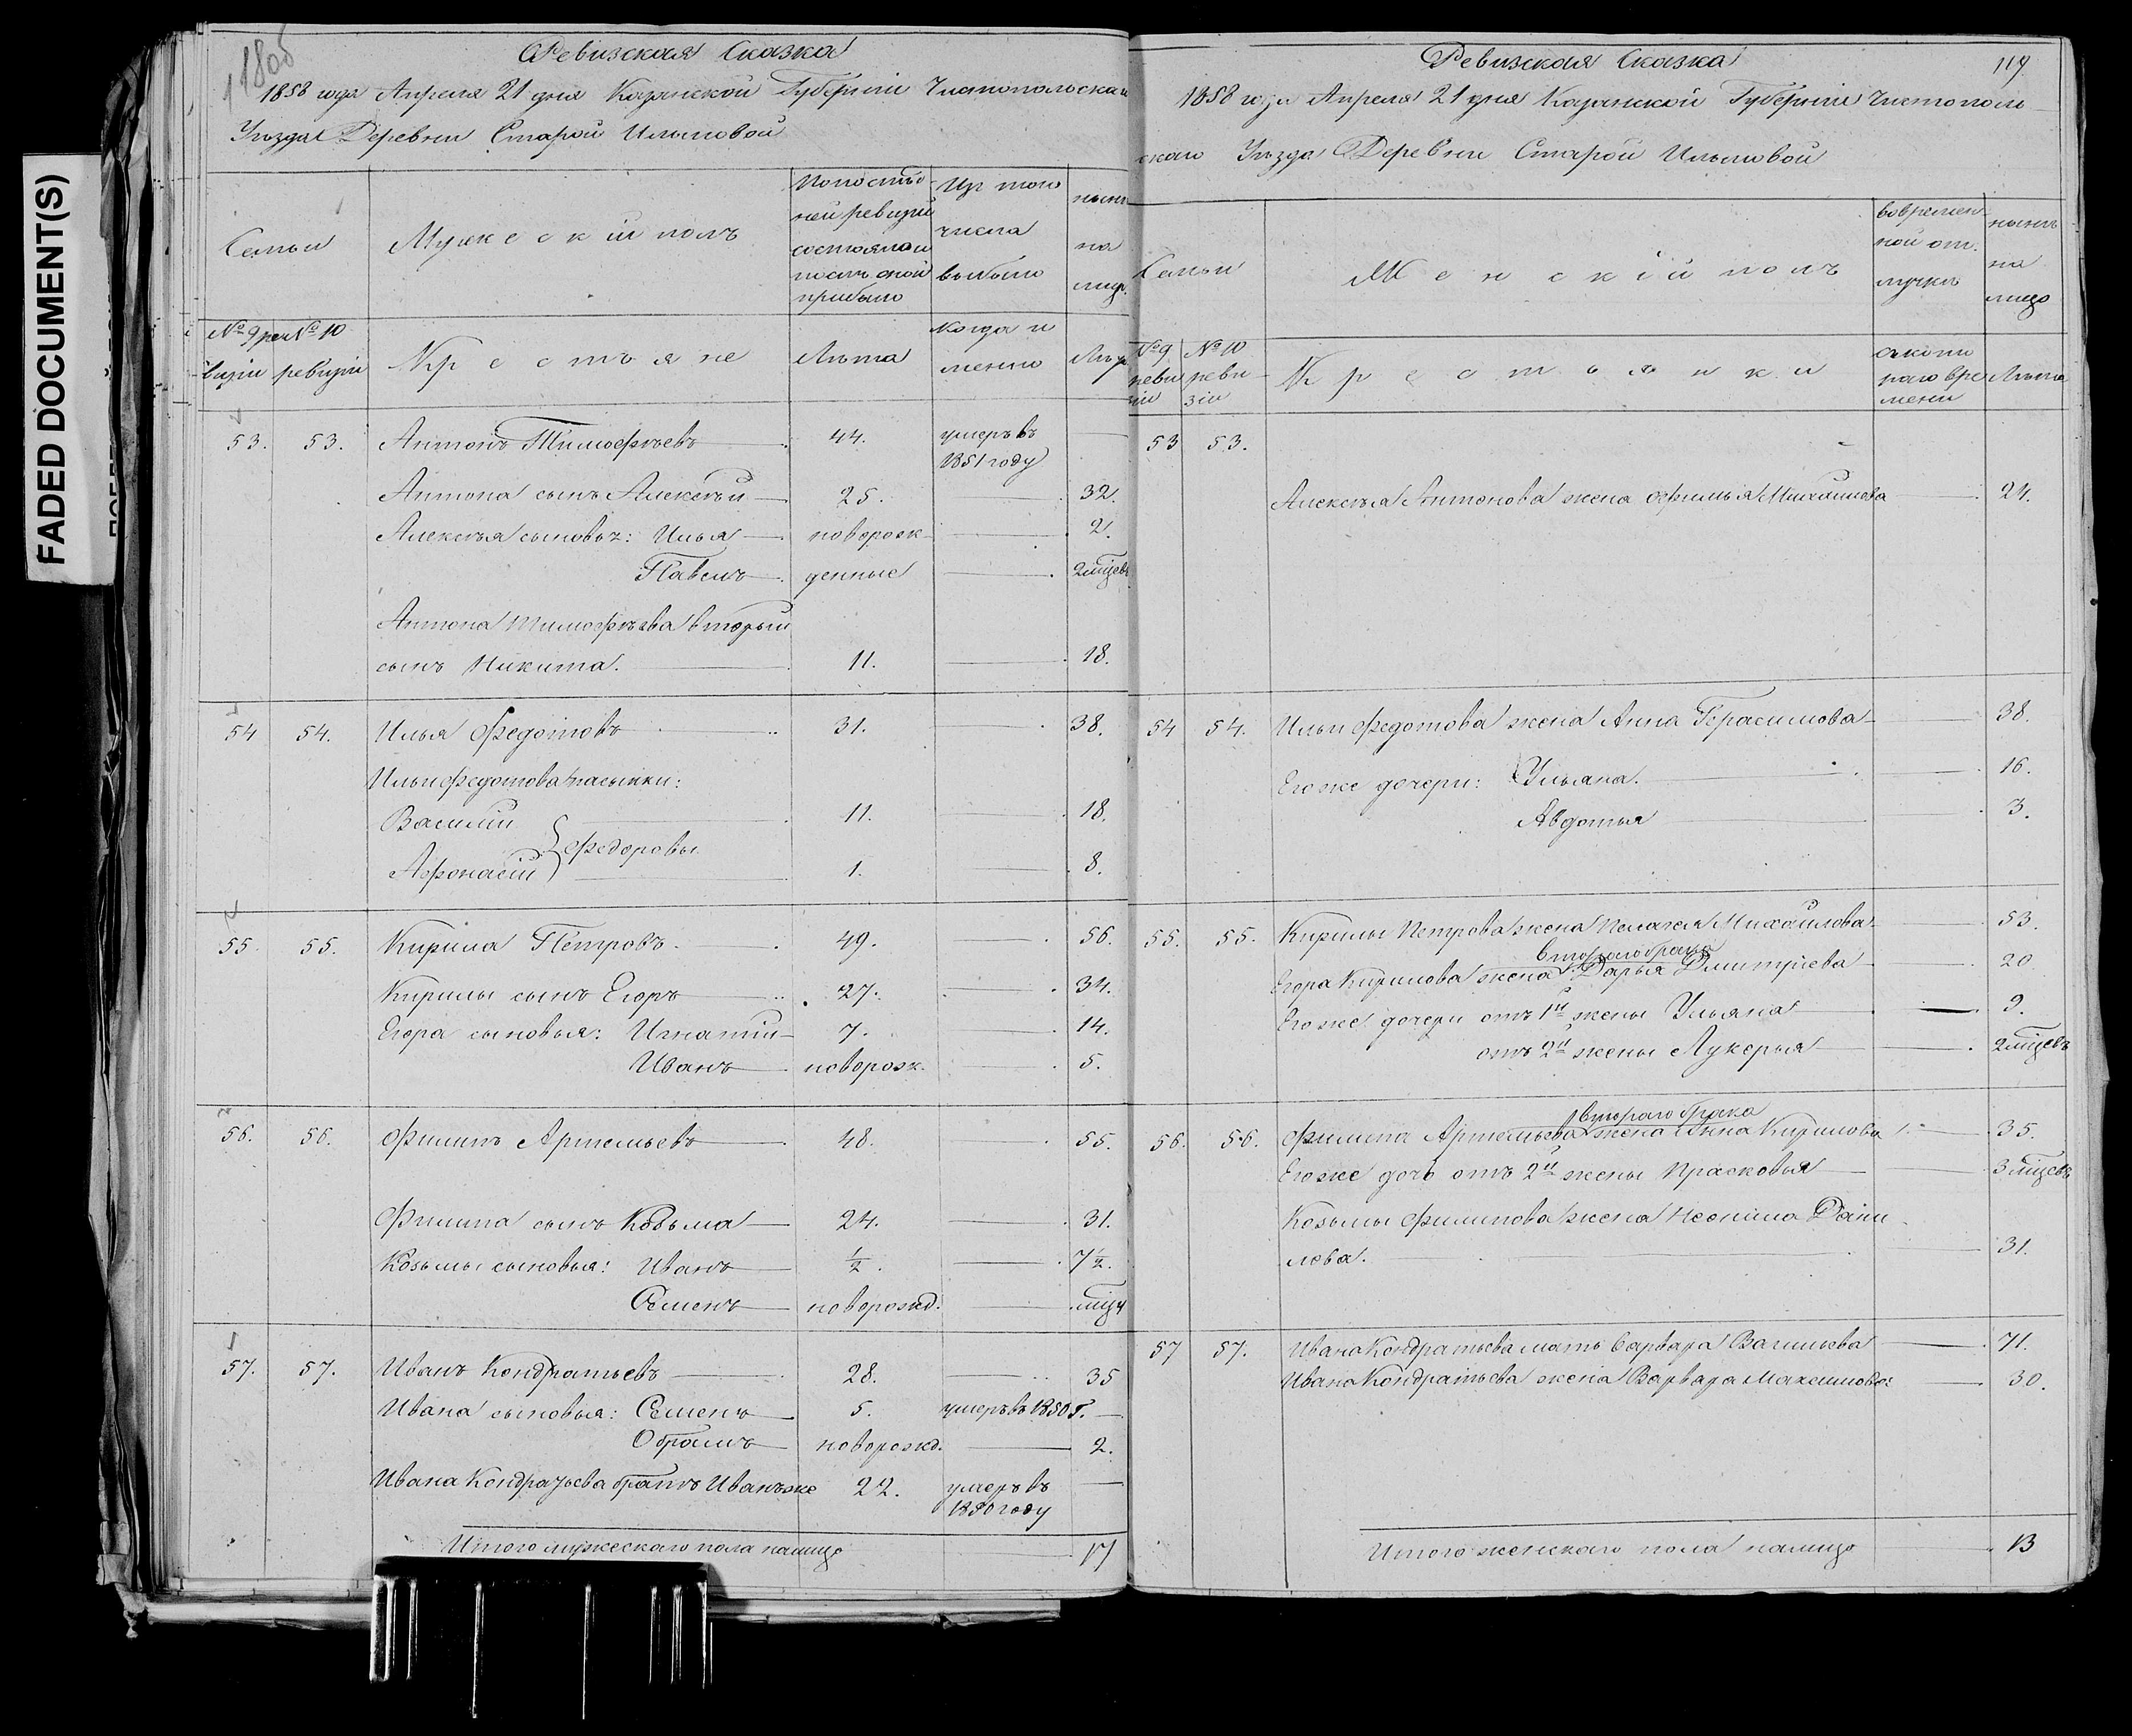 FADED DOCUMENT(S)
Ревизская Сказка
1858 года Апреля 21 дня Казанской Губерніи Чистопольскаго
Уѣзда Деревни Старой Ильмовой
Семьи
Мужескій полъ
По послѣд
ней ревизіи
состояло и
послѣ оной
прибыло
Изъ того
числа
выбыло
нынѣ
на
лицо
№ 9 ре
визіи
№ 10
ревизіи
Крестьяне
Лѣта
когда и
менно
Лѣта
53. 53. Антонъ Тимофѣевъ 44. умеръ въ
1851 году
Антона сынъ Алексѣй 25. 32.
Алексѣя сыновья: Илья новорож 2.
Павелъ денные 2 мѣсцевъ
Антона Тимофѣева вторый
сынъ Никита. 11. 18.
54 54. Илья Федотовъ 31. 38.
Ильи Федотова пасынки:
Василій 11. 18.
Федоровы
Афонасій 1. 8.
55. 55. Кирила Петровъ 49. 56.
Кирилы сынъ Егоръ 27. 34.
Егора сыновья: Игнатій 7. 14.
Иванъ новорож. 5.
56. 56. Филипъ Артемьевъ 48. 55.
Филипа сынъ Козьма 24. 31.
Козьмы сыновья: Иванъ 1/2. 7 1/2.
Семенъ новорожд.
57. 57. Иванъ Кондратьевъ 28. 35
Ивана сыновья: Семенъ 5. умеръ въ 1850 г.
Обрамъ новорожд. 2.
Ивана Кондратьева братъ Иванъ же 22. умеръ въ
1850 году
Итого мужескаго пола налицо 17
Ревизская Сказка
119
1858 года Апреля 21 дня Казанской Губерніи Чистополь
скаго Уѣзда Деревни Старой Ильмовой
Семьи
Женскій полъ
во времен
ной от
лучкѣ
нынѣ
на
лицо
№ 9
реви
зіи
№ 10
реви
зіи
Крестьянки
съ кото
раго вре
мени
Лѣта
53 53.
Алексѣя Антонова жена Офимья Михайлова 24.
54 54. Ильи Федотова жена Анна Герасимова 38.
Его же дочери: Ульяна. 16.
Авдотья 3.
55. 55. Кирилы Петрова жена Пелагея Михайлова 53.
втораго брака
Егора Кирилова жена Дарья Дмитріева 20
Его же дочери отъ 1й жены Ульяна 9.
отъ 2й жены Лукерья 2 мѣсцевъ
втораго брака
56. 56. Филипа Артемьева жена Анна Кирилова 35.
Его же дочь отъ 2й жены Прасковья 3 мѣсцевъ
Козьмы Филипова жена Неонила Дани
лова. 31.
57 57. Ивана Кондратьева мать Варвара Васильева 71.
Ивана Кондратьева жена Варвара Максимова 30.
Итого женскаго пола налицо 13